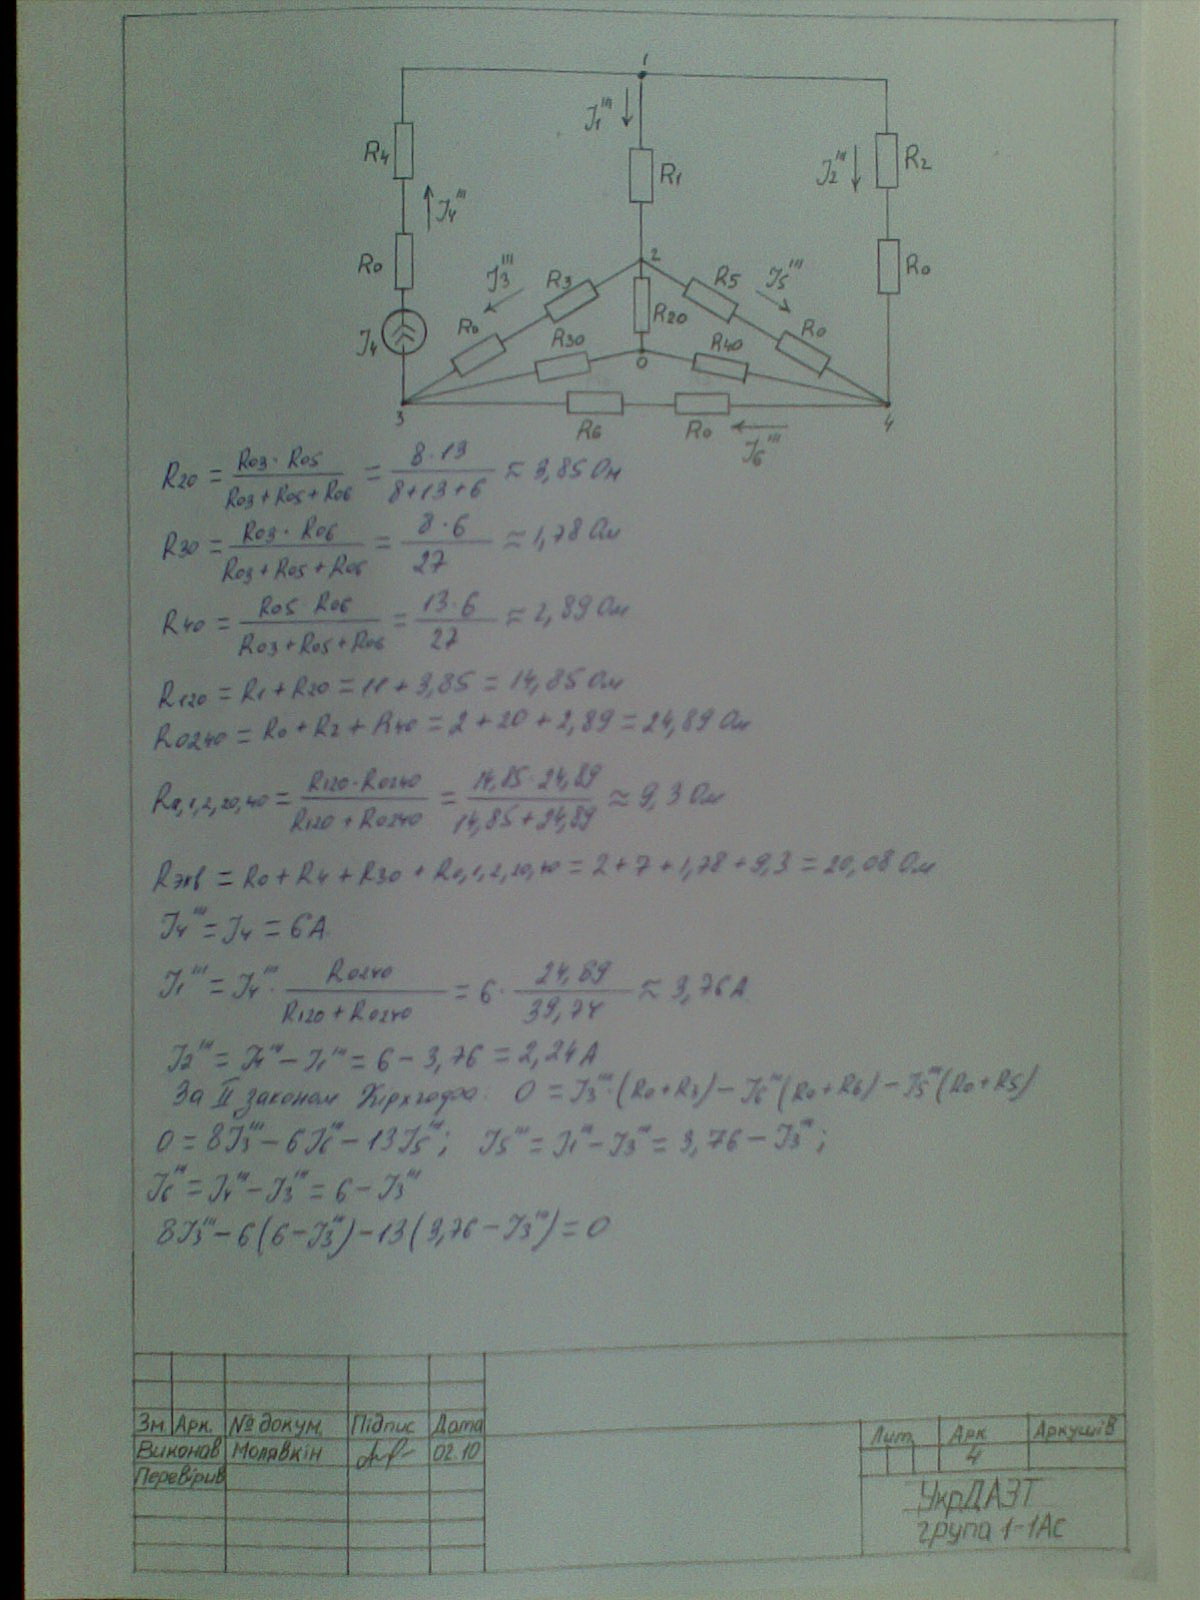 1
J1'''
R4
R1
J2'''
R2
J4'''
R0
2
R0
J3'''
R3
R5
J5'''
J4
R0
R30
R20
R40
R0
0
3
R6
R0
J6'''
4
R20 = R03 · R05 / R03 + R05 + R06 = 8 · 13 / 8 + 13 + 6 ≈ 3,85 Ом
R30 = R03 · R06 / R03 + R05 + R06 = 8 · 6 / 27 ≈ 1,78 Ом
R40 = R05 R06 / R03 + R05 + R06 = 13 · 6 / 27 ≈ 2,89 Ом
R120 = R1 + R20 = 11 + 3,85 = 14,85 Ом
R0240 = R0 + R2 + R40 = 2 + 20 + 2,89 = 24,89 Ом
R0,1,2,20,40 = R120 · R0240 / R120 + R0240 = 14,85 · 24,89 / 14,85 + 24,89 ≈ 9,3 Ом
Rэкв = R0 + R4 + R30 + R0,1,2,20,40 = 2 + 7 + 1,78 + 9,3 = 20,08 Ом
J4''' = J4 = 6 А
J1''' = J4''' · R0240 / R120 + R0240 = 6 · 24,89 / 39,74 ≈ 3,76 А
J2''' = J4''' − J1''' = 6 − 3,76 = 2,24 А
За II законом Кірхгофа: 0 = J3''' · (R0 + R3) − J6''' (R0 + R6) − J5''' (R0 + R5)
0 = 8J3''' − 6J6''' − 13J5'''; J5''' = J1''' − J3''' = 3,76 − J3''';
J6''' = J4''' − J3''' = 6 − J3'''
8J3''' − 6(6 − J3''') − 13(3,76 − J3''') = 0
Зм. Арк. № докум. Підпис Дата
Виконав Молявкін 02.10
Перевірив
Лит. Арк Аркушів
4
УкрДАЗТ
група 1-1АС